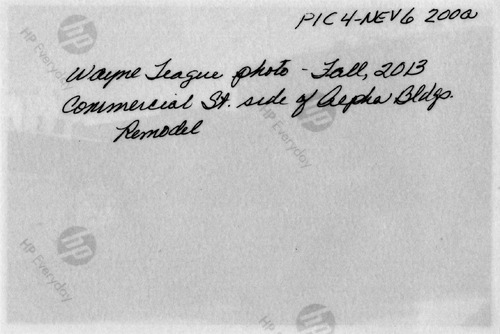 PIC4-NEV6 200a
Wayne Teague photo - Fall, 2013
Commercial St. side of Alpha Bldgs.
Remodel
hp
HP Everyday
hp
HP Everyday
hp
HP Everyday
hp
HP Everyday